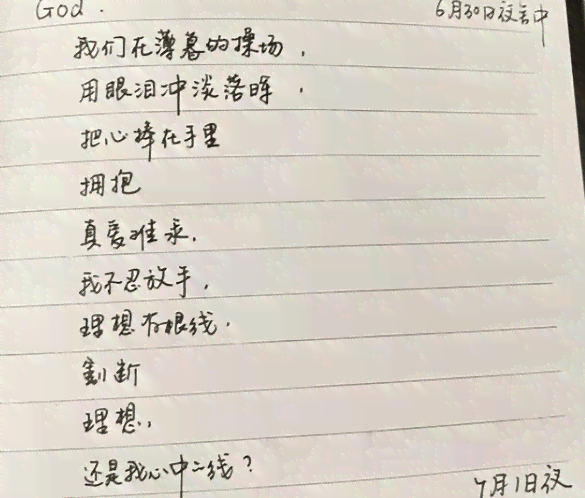 God.
6月30日夜言中
我们在薄暮的操场,
用眼泪冲淡落晖,
把心捧在手里
拥抱
真爱难求,
我不忍放手,
理想有根线,
割断
理想,
还是我心中之线?
7月1日夜